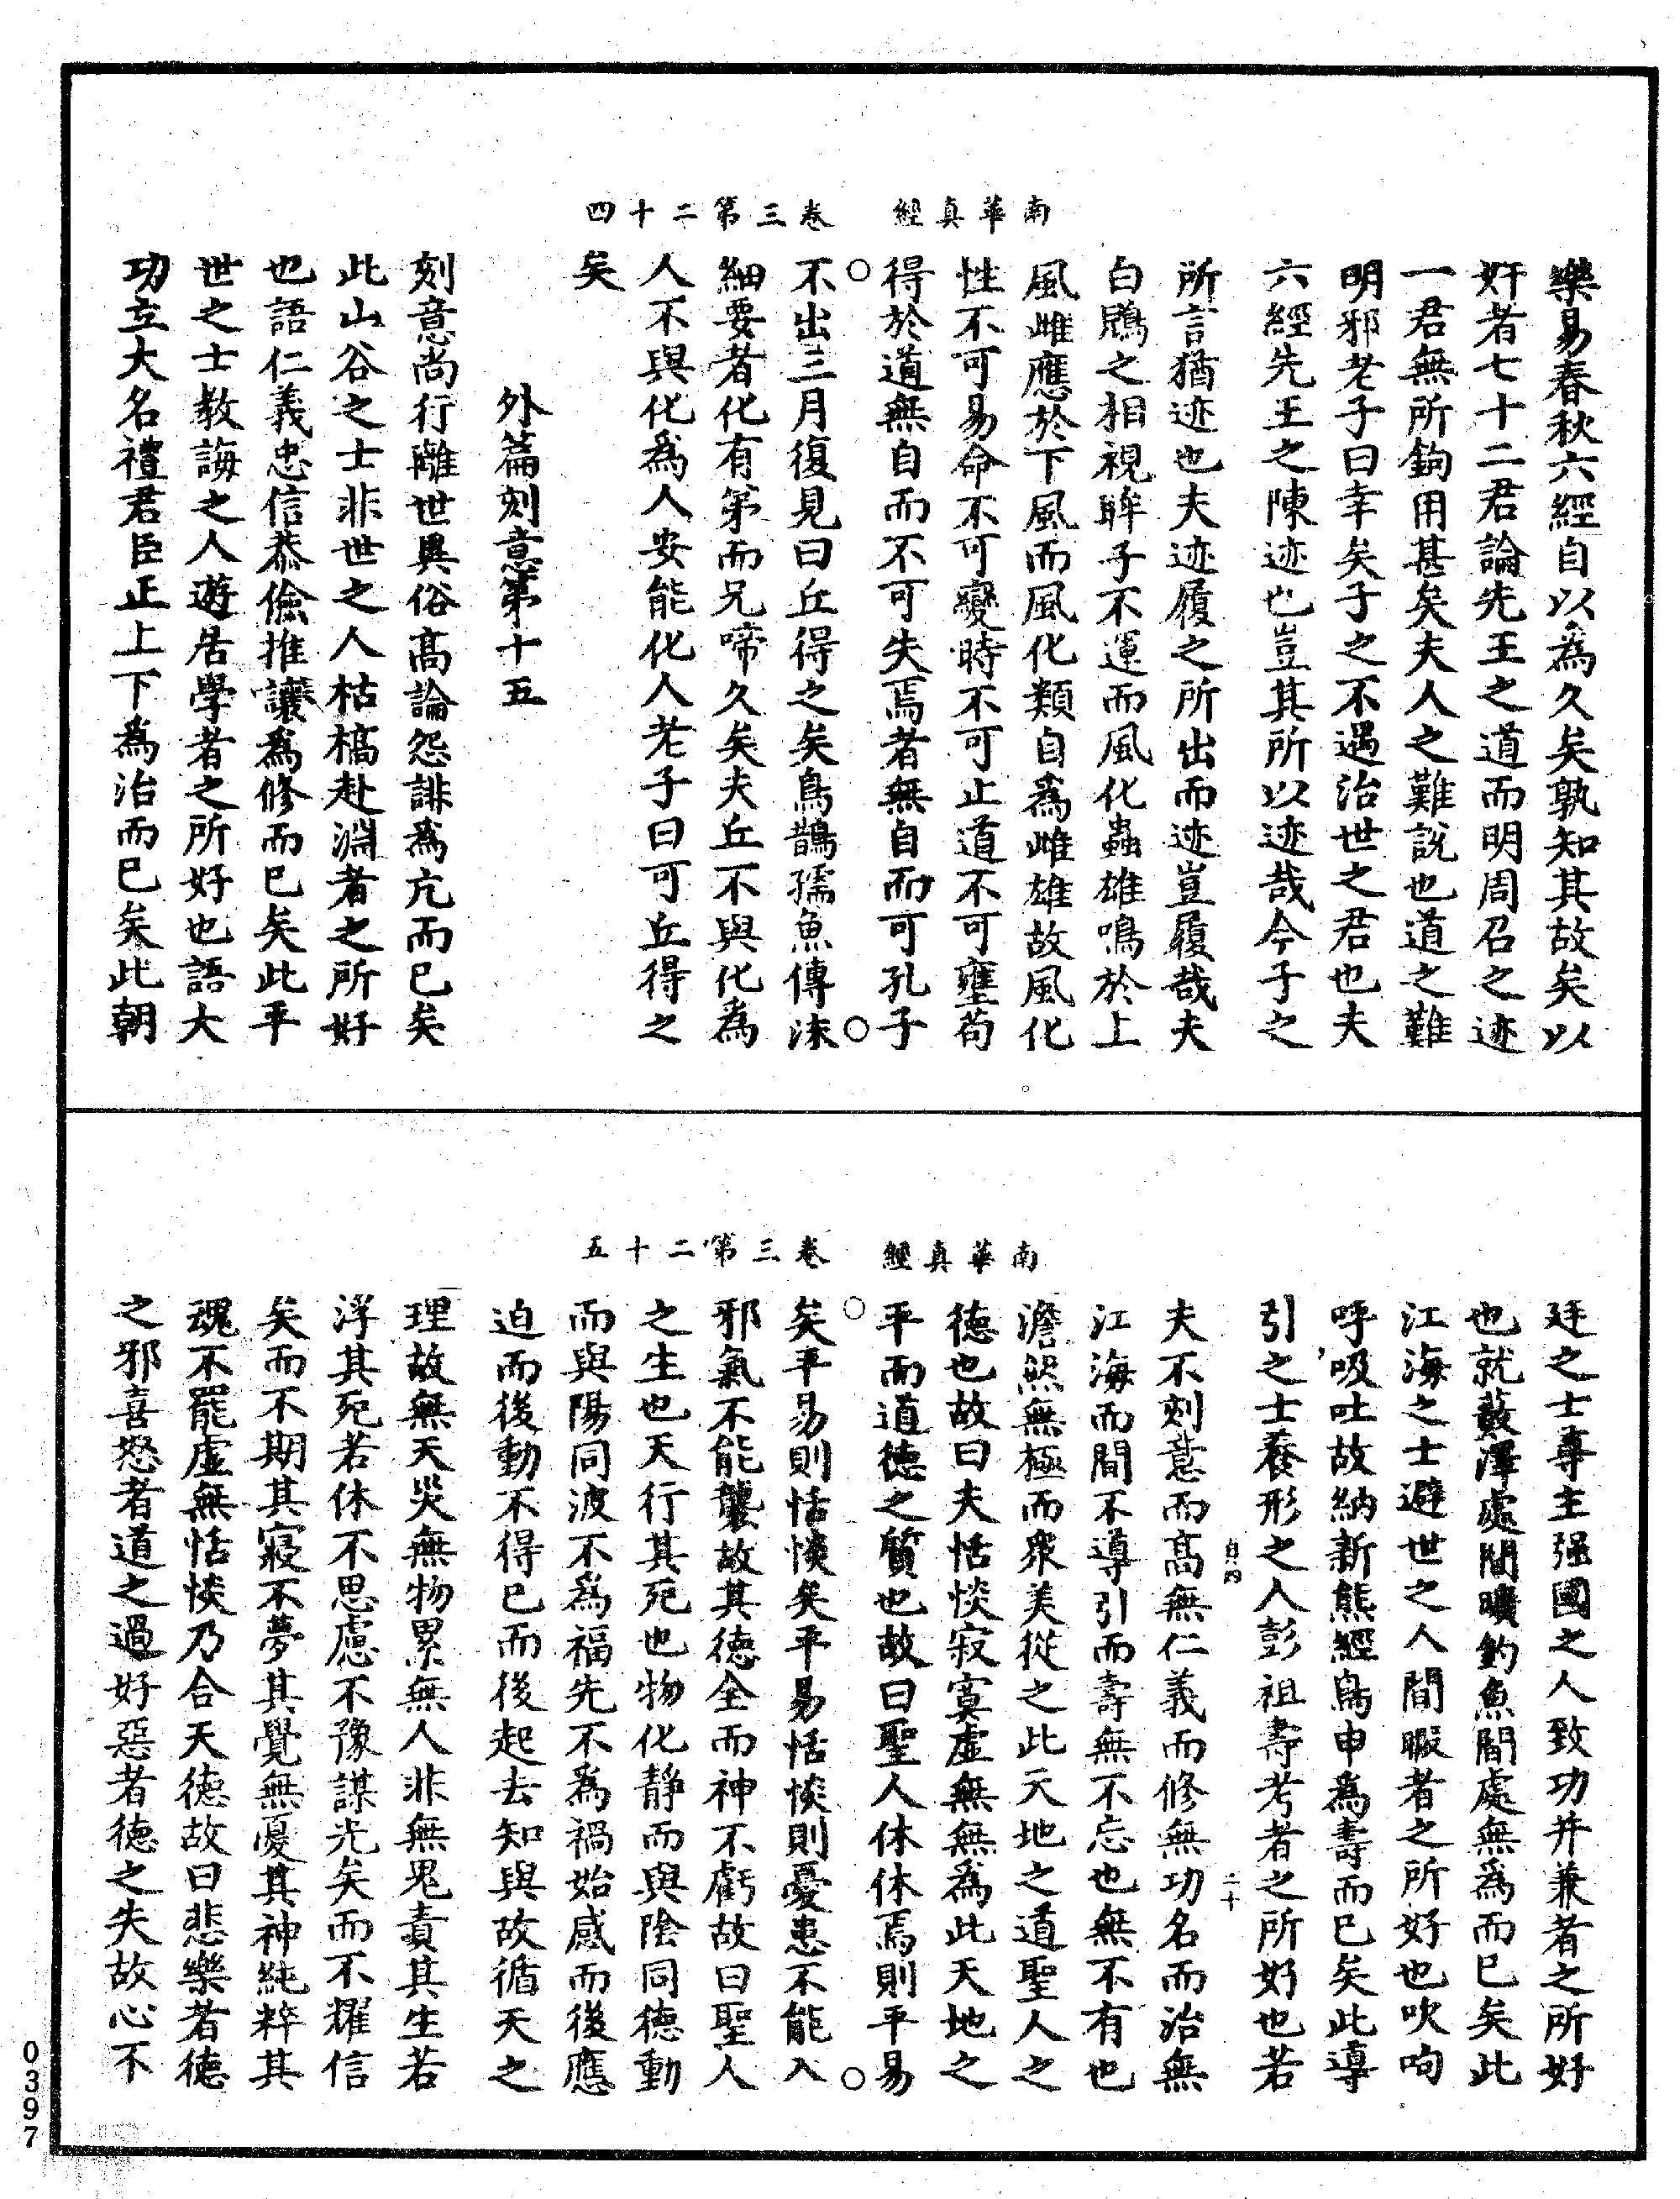 南華真經　卷三第二十四
樂易春秋六經自以為久矣孰知其故矣以
奸者七十二君論先王之道而明周召之迹
一君無所鉤用甚矣夫人之難說也道之難
明邪老子曰幸矣子之不遇治世之君也夫
六經先王之陳迹也豈其所以迹哉今子之
所言猶迹也夫迹履之所出而迹豈履哉夫
白鶂之相視眸子不運而風化蟲雄鳴於上
風雌應於下風而風化類自為雌雄故風化
性不可易命不可變時不可止道不可壅苟
得於道無自而不可失焉者無自而可孔子
不出三月復見曰丘得之矣鳥鵲孺魚傅沫
細要者化有弟而兄啼久矣夫丘不與化為
人不與化為人安能化人老子曰可丘得之
矣
外篇刻意第十五
刻意尚行離世異俗高論怨誹為亢而已矣
此山谷之士非世之人枯槁赴淵者之所好
也語仁義忠信恭儉推讓為修而已矣此平
世之士教誨之人遊居學者之所好也語大
功立大名禮君臣正上下為治而已矣此朝
南華真經　卷三第二十五
廷之士尊主强國之人致功并兼者之所好
也就藪澤處閒曠釣魚閒處無為而已矣此
江海之士避世之人閒暇者之所好也吹呴
呼吸吐故納新熊經鳥申為壽而已矣此導
引之士養形之人彭祖壽考者之所好也若
二十
夫不刻意而高無仁義而修無功名而治無
江海而閒不導引而壽無不忘也無不有也
澹然無極而衆美從之此天地之道聖人之
德也故曰夫恬惔寂寞虛無無為此天地之
平而道德之質也故曰聖人休休焉則平易
矣平易則恬惔矣平易恬惔則憂患不能入
邪氣不能襲故其德全而神不虧故曰聖人
之生也天行其死也物化靜而與陰同德動
而與陽同波不為福先不為禍始感而後應
迫而後動不得已而後起去知與故循天之
理故無天災無物累無人非無鬼責其生若
浮其死若休不思慮不豫謀光矣而不耀信
矣而不期其寢不夢其覺無憂其神純粹其
魂不罷虛無恬惔乃合天德故曰悲樂者德
之邪喜怒者道之過好惡者德之失故心不
0397